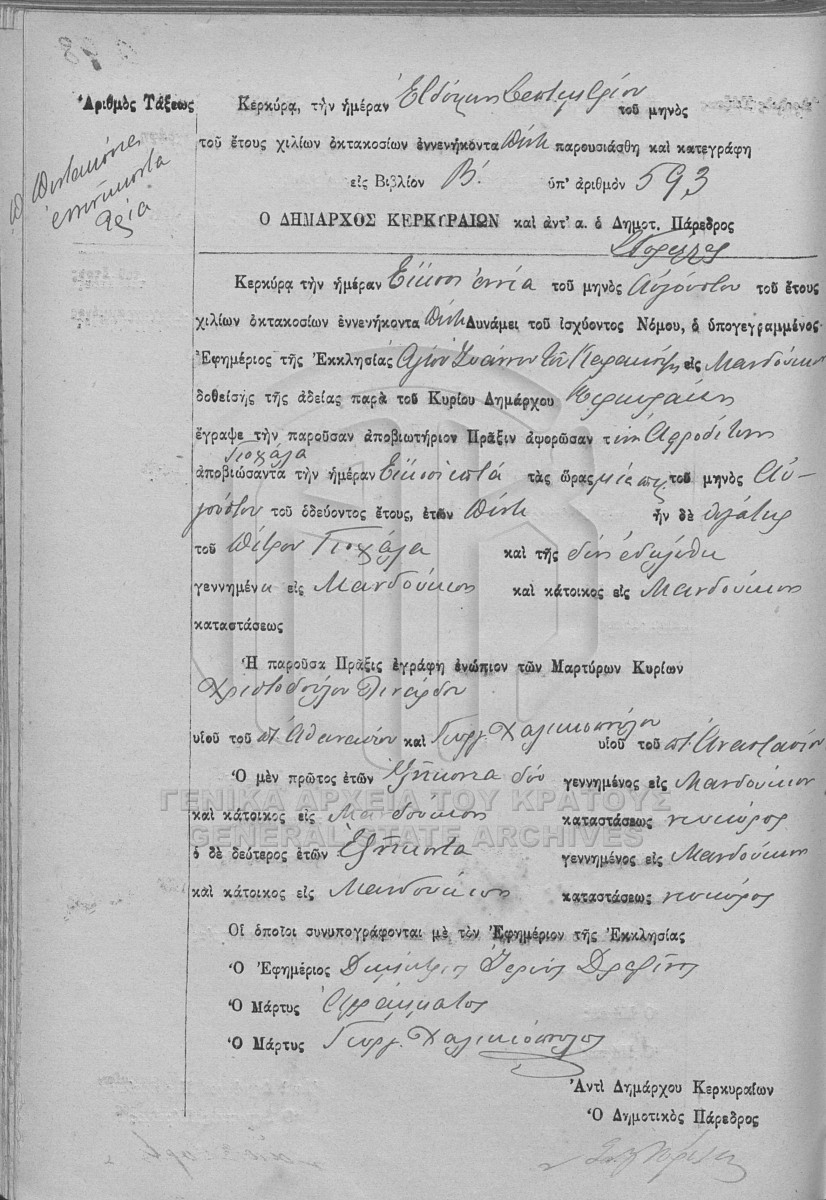 Ἀριθμὸς Τάξεως
Πεντακόσια
ἐννενήκοντα
τρία
Κερκύρᾳ, τὴν ἡμέραν Ἑβδόμην Σεπτεμβρίου τοῦ μηνὸς
τοῦ ἔτους χιλίων ὀκτακοσίων ἐννενήκοντα πέντε παρουσιάσθη καὶ κατεγράφη
εἰς Βιβλίον Β΄. ὑπ' ἀριθμὸν 593
Ο ΔΗΜΑΡΧΟΣ ΚΕΡΚΥΡΑΙΩΝ καὶ ἀντ' α. ὁ Δημοτ. Πάρεδρος
Κερκύρᾳ τὴν ἡμέραν Εἴκοσι ἐννέα τοῦ μηνὸς Αὐγούστου τοῦ ἔτους
χιλίων ὀκτακοσίων ἐννενήκοντα πέντε Δυνάμει τοῦ ἰσχύοντος Νόμου, ὁ ὑπογεγραμμένος
Ἐφημέριος τῆς Ἐκκλησίας Ἁγίου Ἰωάννου τοῦ εἰς Μανδούκιον
δοθείσης τῆς ἀδείας παρὰ τοῦ Κυρίου Δημάρχου Κερκυραίων
ἔγραψε τὴν παροῦσαν ἀποβιωτήριον Πρᾶξιν ἀφορῶσαν τὴν Ἀφροδίτην
Γιοχάλα
ἀποβιώσαντα τὴν ἡμέραν Εἴκοσι ἑπτά τὰς ὥρας μία π.μ. τοῦ μηνὸς Αὐ-
γούστου τοῦ ὁδεύοντος ἔτους, ἐτῶν πέντε ἦν δὲ θυγάτηρ
τοῦ Πέτρου Γιοχάλα καὶ τῆς δὲν ἐδηλώθη
γεννημένα εἰς Μανδούκιον καὶ κάτοικος εἰς Μανδούκιον
καταστάσεως
Ἡ παροῦσα Πρᾶξις ἐγράφη ἐνώπιον τῶν Μαρτύρων Κυρίων
Χριστοδούλου Λινάρδου
υἱοῦ τοῦ π. Ἀθανασίου καὶ Γεωργ. Χαλικιοπούλου υἱοῦ τοῦ π. Ἀναστασίου
Ὁ μὲν πρῶτος ἐτῶν Ἑξήκοντα δύο γεννημένος εἰς Μανδούκιον
καὶ κάτοικος εἰς Μανδούκιον καταστάσεως νεωκόρος
ὁ δὲ δεύτερος ἐτῶν Ἑξήκοντα γεννημένος εἰς Μανδούκιον
καὶ κάτοικος εἰς Μανδούκιον καταστάσεως νεωκόρος
Οἱ ὁποῖοι συνυπογράφονται μὲ τὸν Ἐφημέριον τῆς Ἐκκλησίας
Ὁ Ἐφημέριος Δημήτριος Ἱερεὺς
Ὁ Μάρτυς Ἀγράμματος
Ὁ Μάρτυς Γεωργ. Χαλικιόπουλος
Ἀντὶ Δημάρχου Κερκυραίων
Ὁ Δημοτικὸς Πάρεδρος
ΓΕΝΙΚΑ ΑΡΧΕΙΑ ΤΟΥ ΚΡΑΤΟΥΣ
GENERAL STATE ARCHIVES